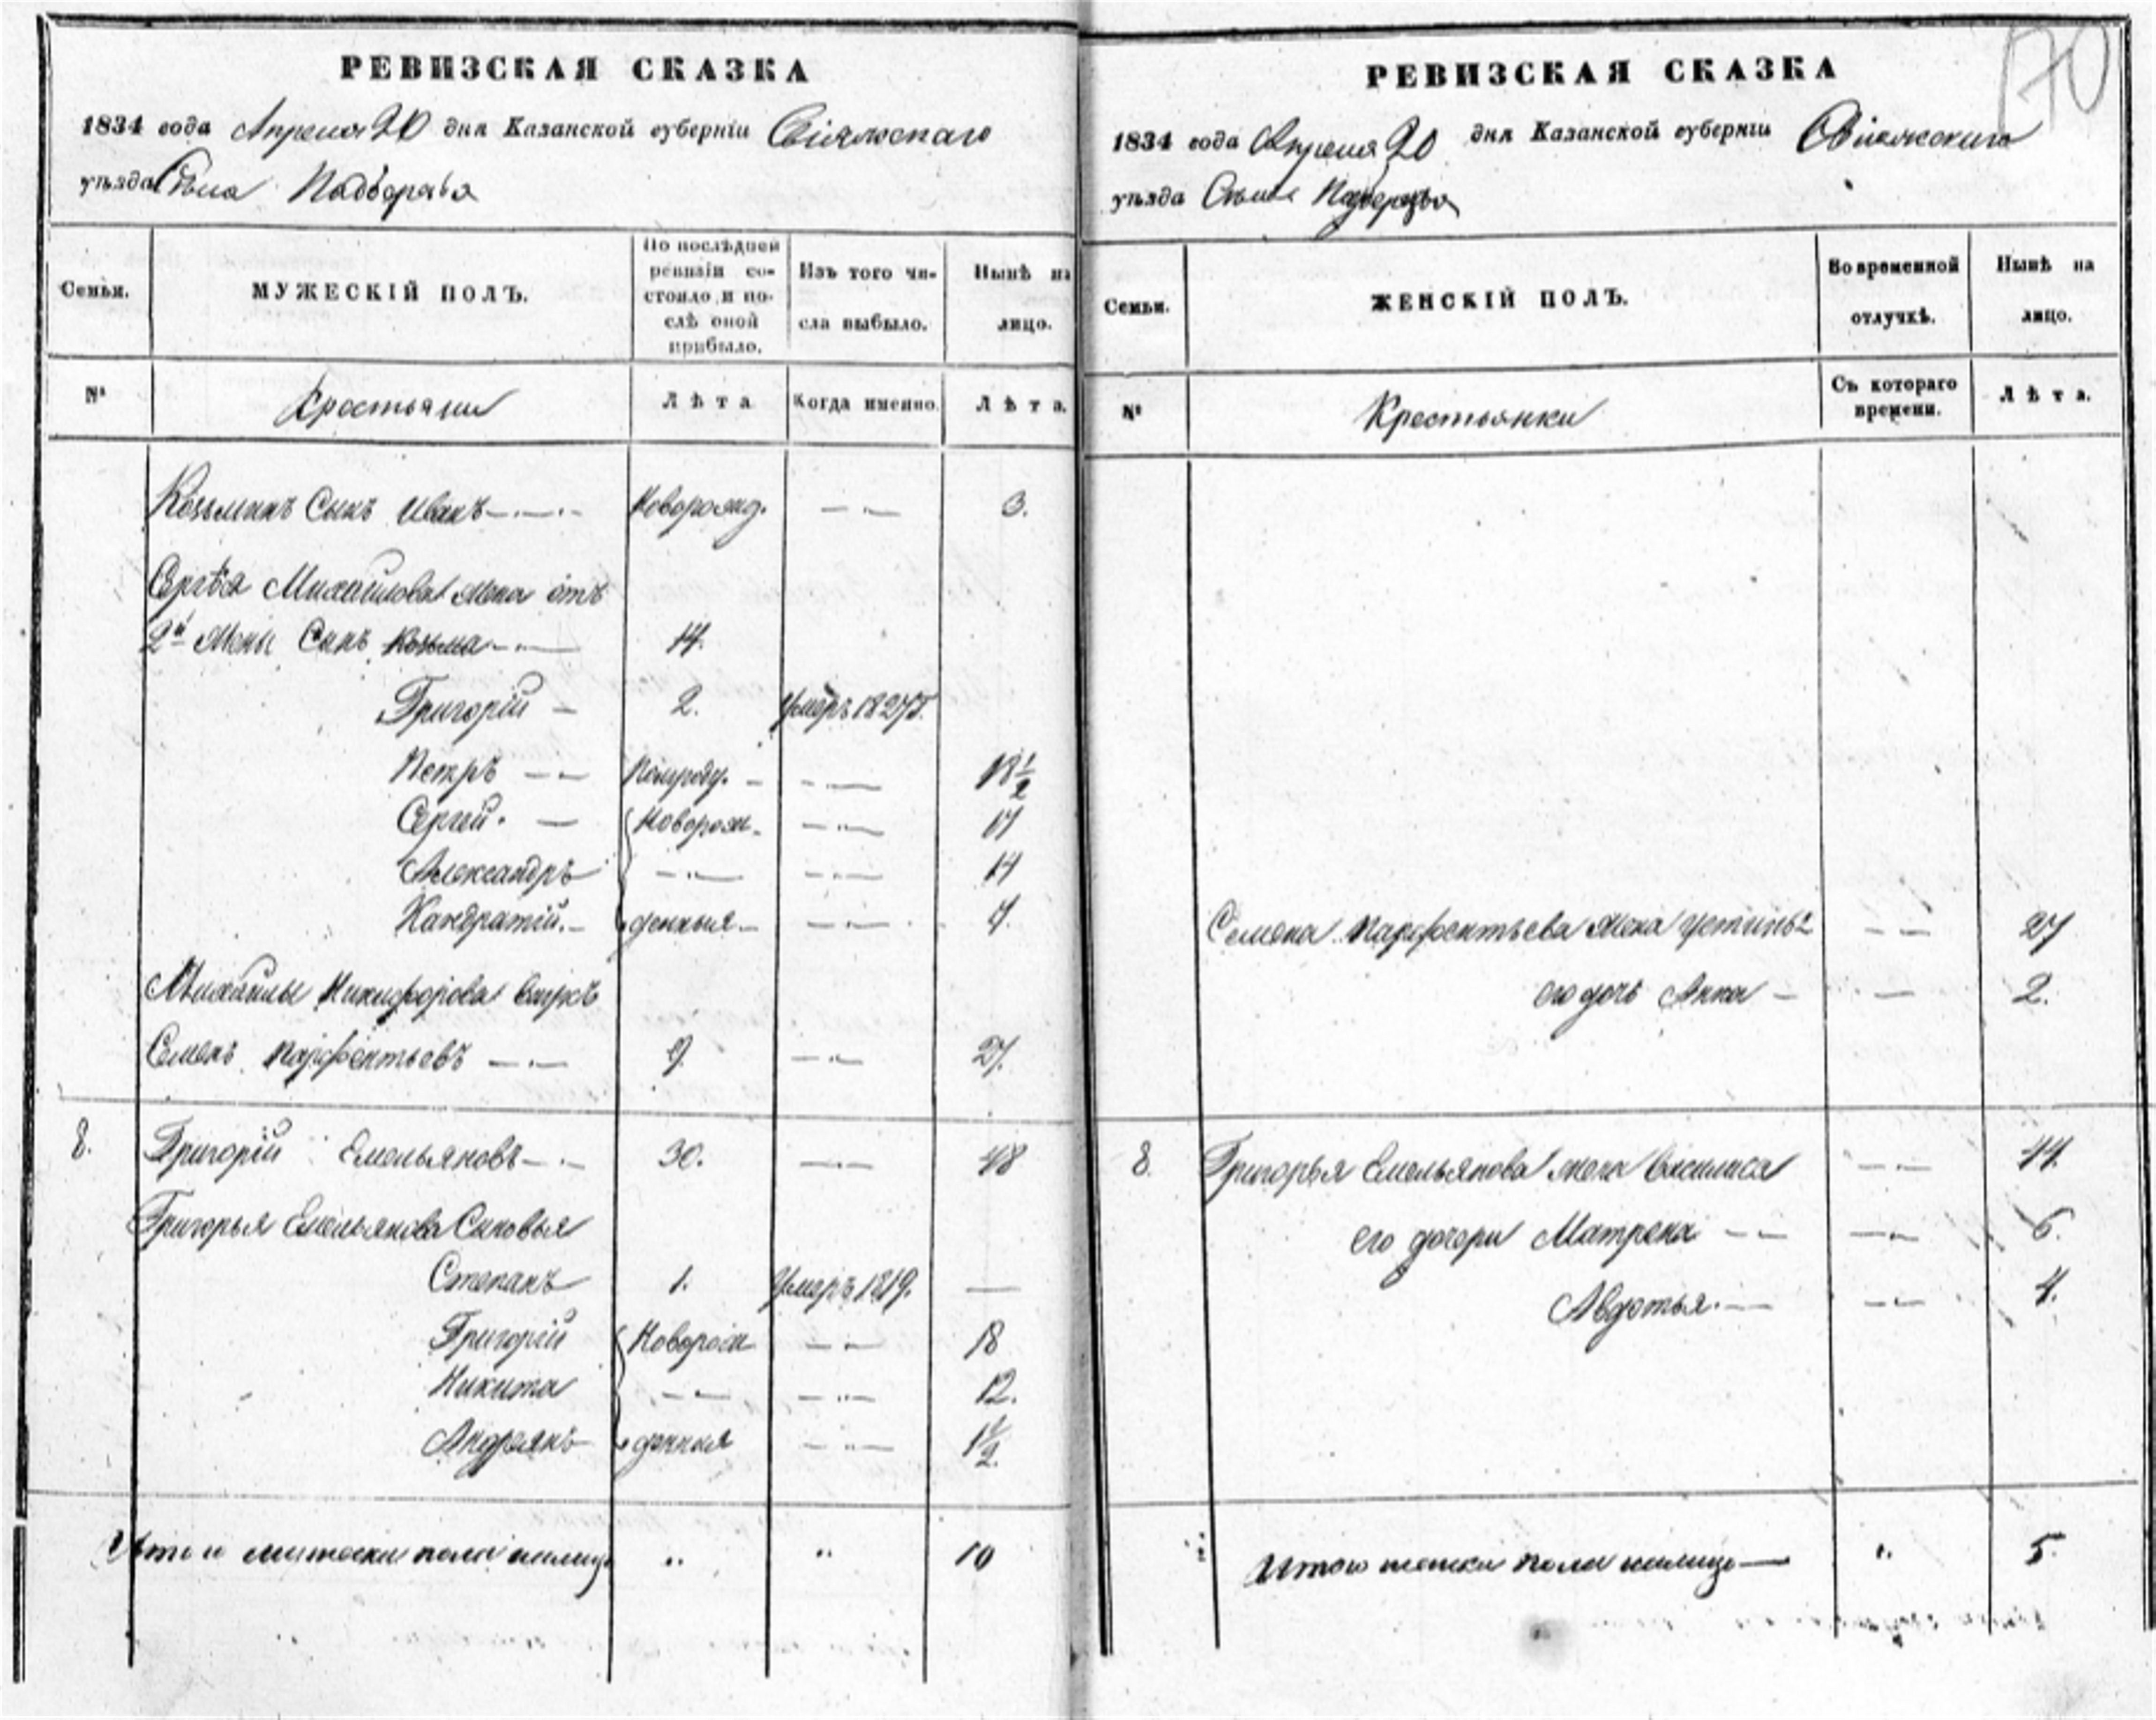 РЕВИЗСКАЯ СКАЗКА
1834 года Апреля 20 дня Казанской губерніи Свіяжскаго
уѣзда Села Подберезья
Семьи.
МУЖЕСКІЙ ПОЛЪ.
По послѣдней ревизіи состояло и послѣ оной прибыло.
Изъ того числа выбыло.
Нынѣ на лицо.
№
Крестьяни
Лѣта
Когда именно.
Лѣта.
Козьминъ Сынъ Иванъ Новорожд. 3.
Сергѣя Михайлова жена отъ
2й жены Сынъ Козьма 14.
Григорій 2. Умеръ 1827г.
Петръ 18 1/2
Сергей. Новорож. 17
Александръ 14
Кандратій. денныя 7.
Михайлы Никифорова внукъ
Семенъ Парфентьевъ 9. 27.
8. Григорій Емельяновъ 30. 48
Григорья Емельянова Сыновья
Степанъ 1. Умеръ 1819.
Григорій Новорож 18
Никита 12.
Андреянъ денныя 1 1/2
Итого мужеска пола налицо 10
РЕВИЗСКАЯ СКАЗКА
170
1834 года Апреля 20 дня Казанской губерніи Свіяжскаго
уѣзда Села Подберезья
Семьи.
ЖЕНСКІЙ ПОЛЪ.
Во временной отлучкѣ.
Нынѣ на лицо.
№
Крестьянки
Съ котораго времени.
Лѣта.
Семена Парфентьева жена Устинья 27
его дочь Анна 2.
8. Григорья Емельянова жена Василиса 44.
его дочери Матрена 6.
Авдотья. 4.
Итого женска пола налицо 5.